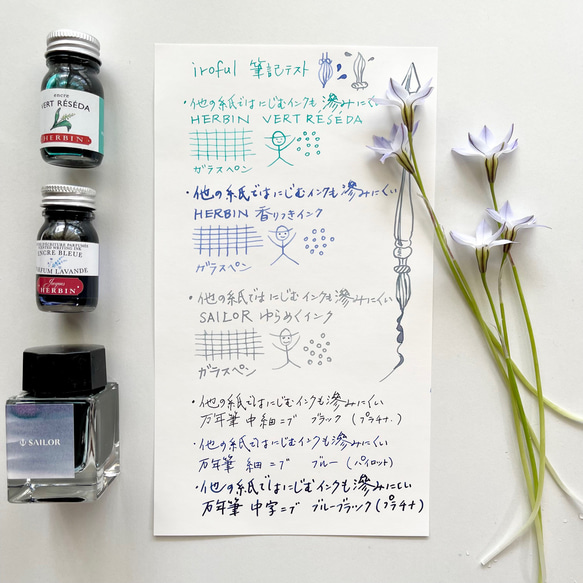 encre
VERT RÉSÉDA
HERBIN
ENCRE BLEUE
PARFUM LAVANDE
Jacques
HERBIN
SAILOR
iroful 筆記テスト
・他の紙ではにじむインクも滲みにくい
HERBIN VERT RÉSÉDA
ガラスペン
・他の紙ではにじむインクも滲みにくい
HERBIN 香りつきインク
ガラスペン
・他の紙ではにじむインクも滲みにくい
SAILOR ゆらめくインク
ガラスペン
・他の紙ではにじむインクも滲みにくい
万年筆 中細ニブ ブラック (プラチナ)
・他の紙ではにじむインクも滲みにくい
万年筆 細ニブ ブルー (パイロット)
・他の紙ではにじむインクも滲みにくい
万年筆 中字ニブ ブルーブラック (プラチナ)